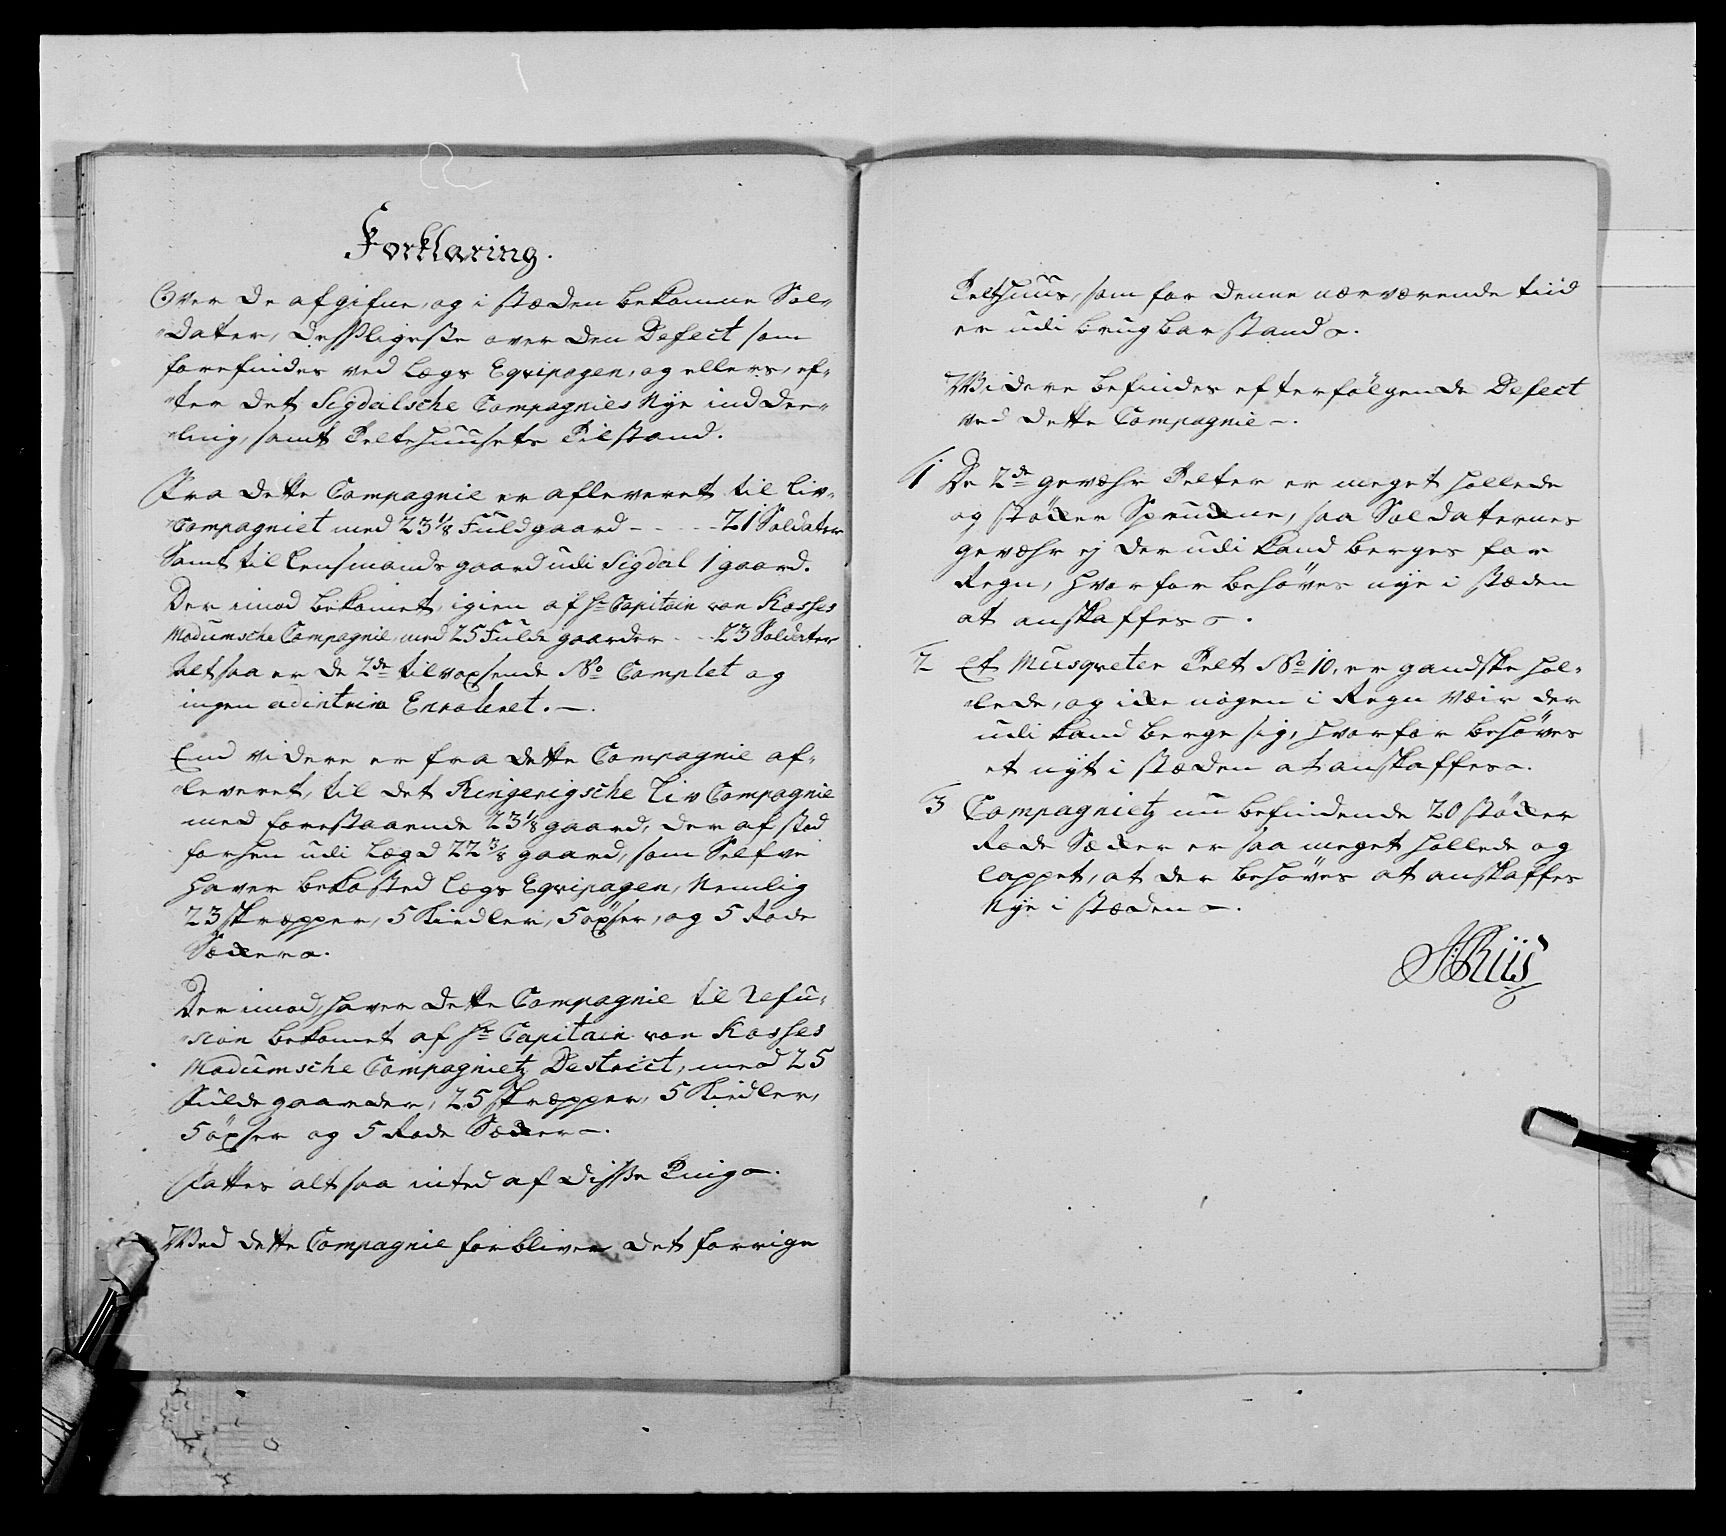 Forklaring.
Over De afgifne, og i stæden bekomne Sol-
dater, Desligeste over den Defect som
forefindes ved Lægs Eqvipagen, og ellers, ef-
ter det Sigdalsche Compagnies Nye inddee-
ling, samt Telthuusets Tilstand.
Fra dette Compagnie er afleveret til Liv-
Compagniet med 23 1/8 Fuldgaard - - - - 21 Soldater
Samt til Lensmands gaard udi Sigdal 1 gaard.
Der imod bekomet, igien af Hr Capitain von Kosses
Modumsche Compagnie, med 25 Fulde gaarder - - 23 Soldater
Altsaa er de 2de tilvoxsende No Complet og
ingen adintrim Enroleret.
End videre er fra dette Compagnie af-
leveret, til det Ringerigsche Liv Compagnie
med forestaaende 23 1/8 gaard, der af stod
forhen udi Lægd 22 3/8 gaard, som Selfve
haver bekosted Lægs Eqvipagen, Nemlig
23 skræpper, 5 Kiedler, 5 öxser, og 5 Rode
Sækker.
Der imod, haver dette Compagnie til Refu-
sion bekomet af Hr Capitain von Kosses
Modumsche Compagnietz Destrict, med 25
Fulde gaarder, 25 skræpper, 5 Kiedler,
5 öxser og 5 Rode Sækker.
Fattes altsaa inted af disse Ting.
Ved dette Compagnie forbliver det forrige
Telthuus, som for denne nærværende tiid
er udi brugbar stand.
Videre befindes efterfölgende Defect
ved dette Compagnie.
1 De 2de gevæhr Telter er meget hollede
og stökker Sprukne, saa Soldaternes
gevæhr ej der udi kand berges for
Regn, hvorfor behöves nye i stæden
at anskaffes.
2 Et Musqveter Telt No 10, er gandske hol-
lede, og ikke nogen i Regn Væir der
udi kand berge sig, hvorfor behöves
et nyt i stæden at anskaffes.
3 Compagnietz nu befindende 20 stökker
Rode Sækker er saa meget hollede og
lappet, at der behöves at anskaffes
Nye i stæden.